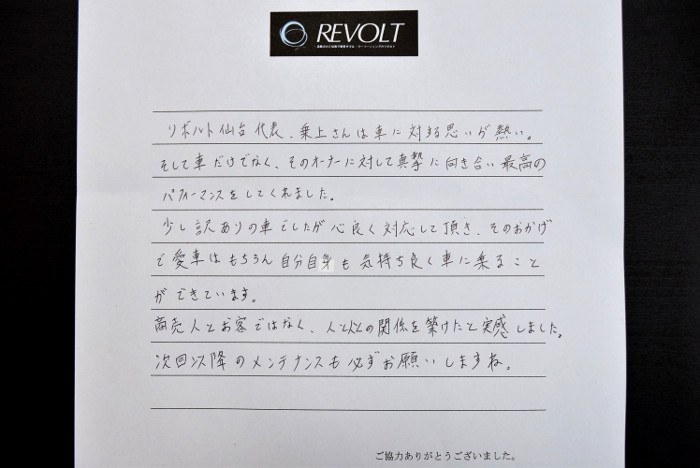 REVOLT
リボルト仙台代表、乗上さんは車に対する思いが熱い。
そして車だけでなく、そのオーナーに対して真摯に向き合い最高の
パフォーマンスをしてくれました。
少し訳ありの車でしたが心良く対応して頂き、そのおかげ
で愛車はもちろん自分自身も気持ち良く車に乗ること
ができています。
商売人とお客ではなく、人と人との関係を築けたと実感しました。
次回以降のメンテナンスも必ずお願いしますね。
ご協力ありがとうございました。